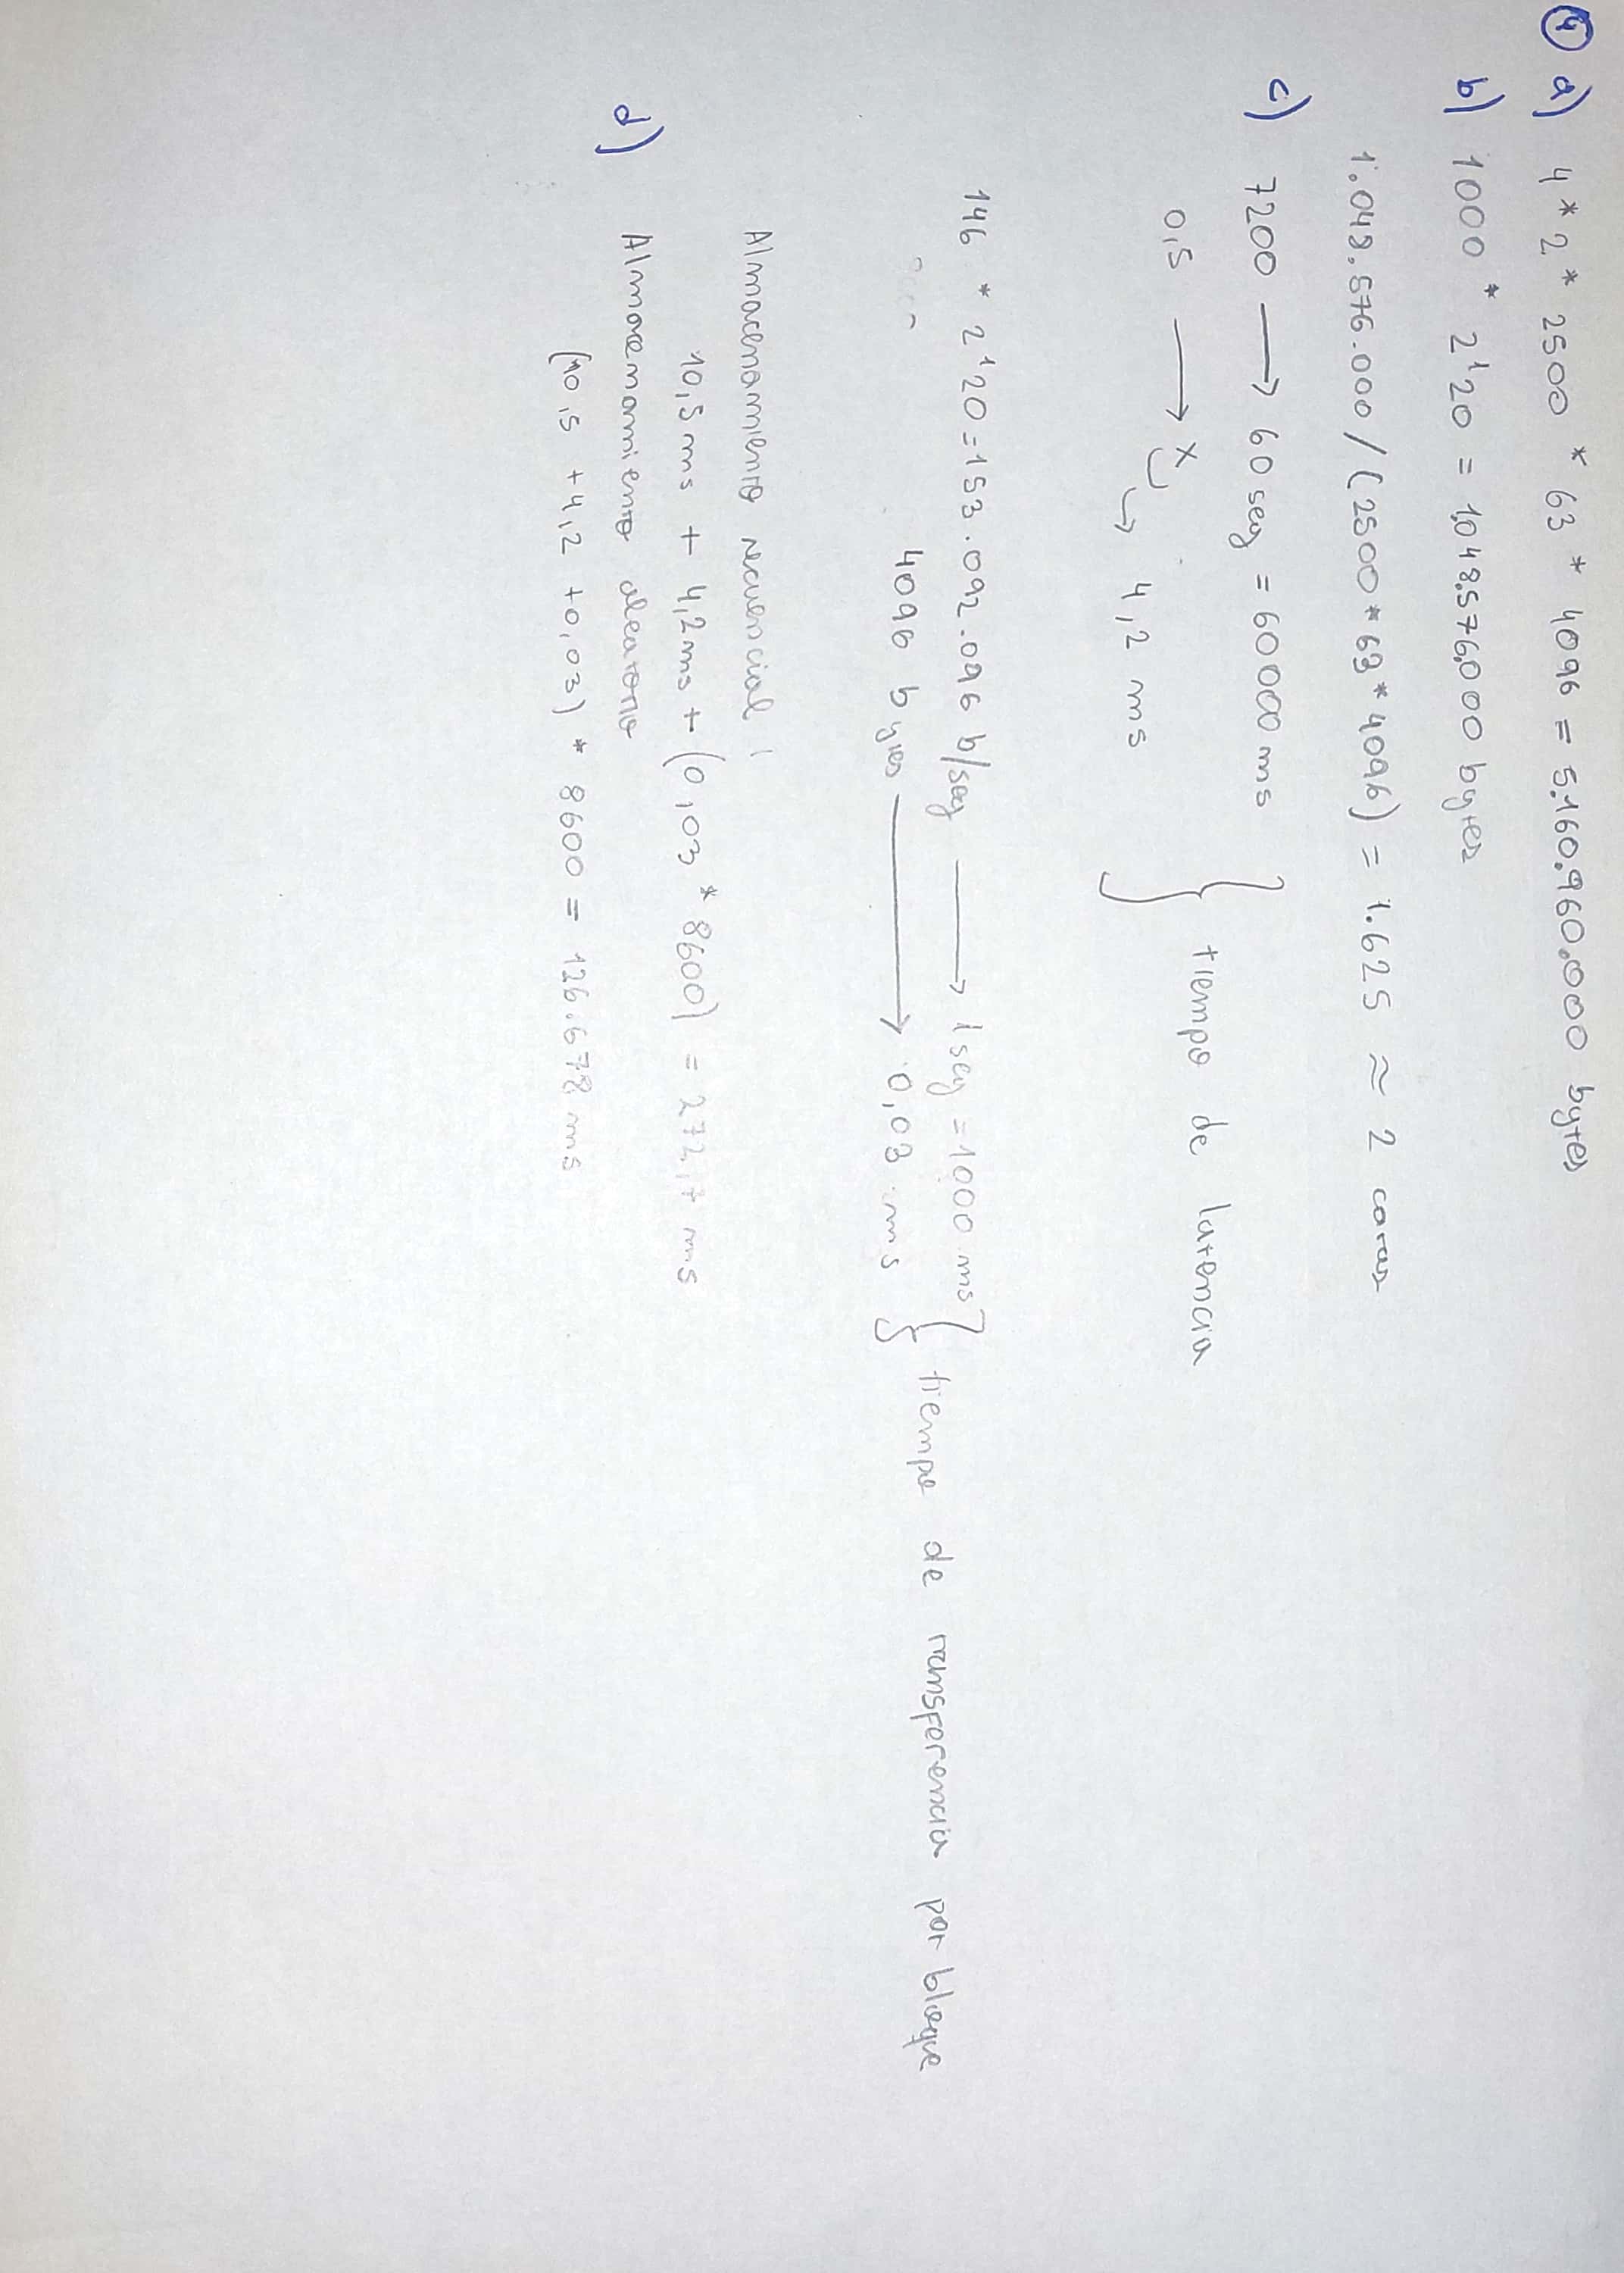 4 a) 4 * 2 * 2500 * 63 * 4096 = 5.160.960.000 bytes
b) 1000 * 2^20 = 1.048.576.000 bytes
1.048.576.000 / (2500 * 63 * 4096) = 1.625 ≈ 2 caras
c) 7200 → 60 seg = 60000 ms
0,5 → x
↳ 4,2 ms
} tiempo de latencia
146 * 2^20 = 153.092.096 b/seg → 1 seg = 1000 ms
4096 bytes → 0,03 ms
} tiempo de transferencia por bloque
Almacenamiento secuencial
10,5 ms + 4,2 ms + (0,03 * 8600) = 272,7 ms
d) Almacenamiento aleatorio
(10,5 + 4,2 + 0,03) * 8600 = 126.678 ms